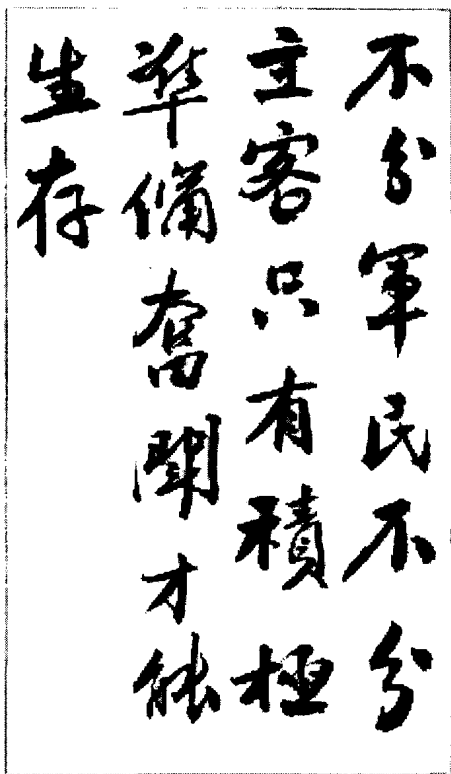 不分軍民不分
主客只有積極
準備奮鬪才能
生存